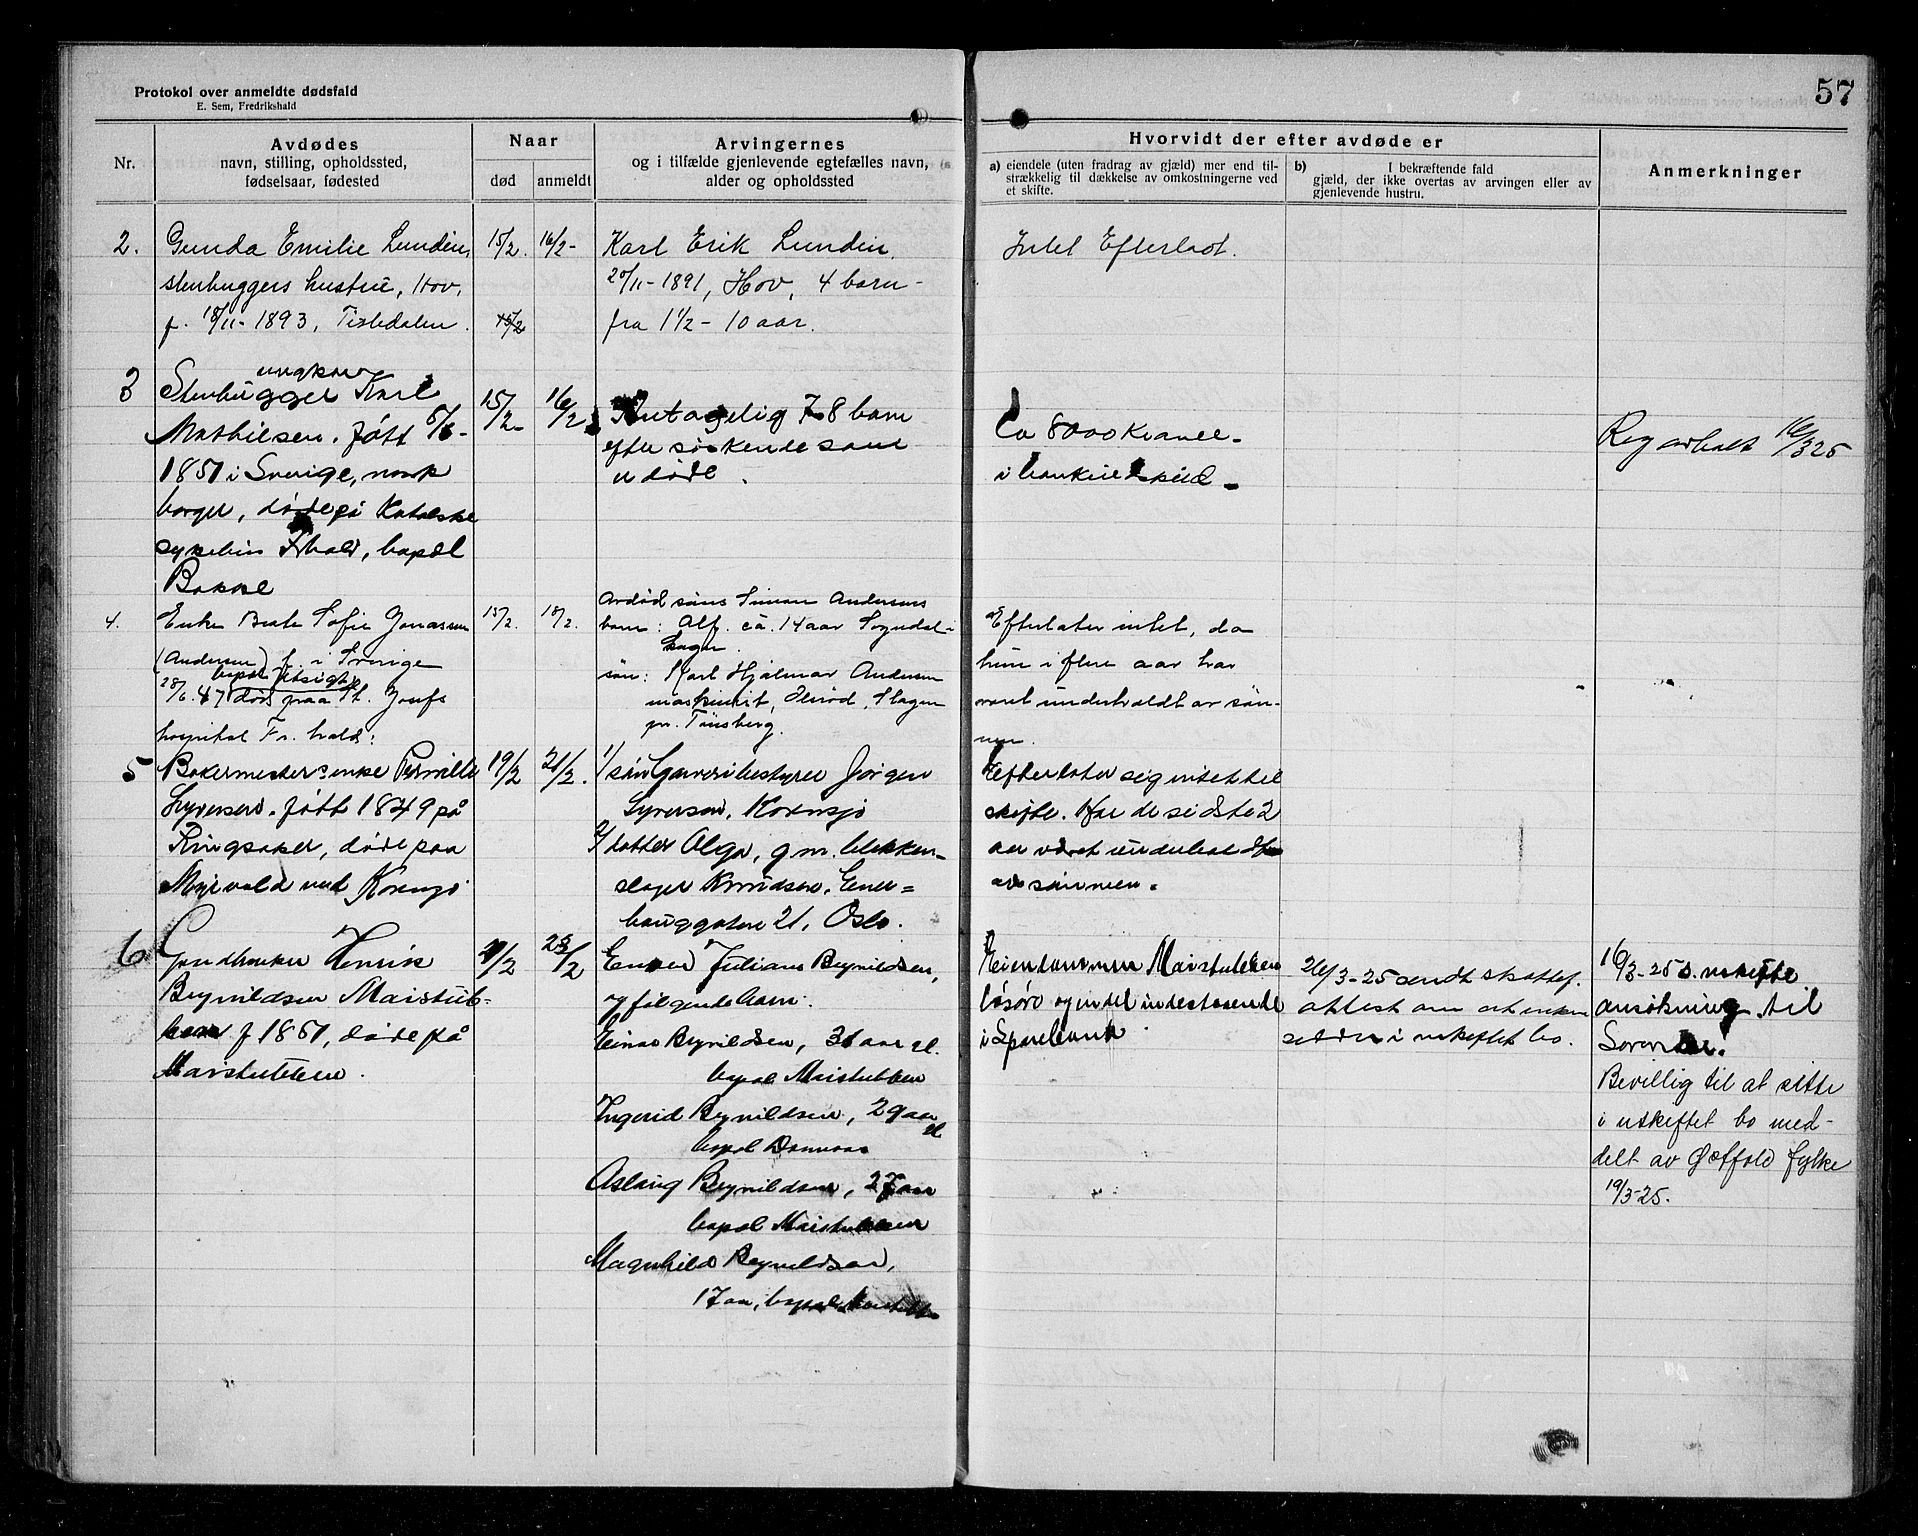 57
Protokol over anmeldte dødsfald
E. Sem, Fredrikshald
Nr.
Avdødes
navn, stilling, opholdssted,
fødselsaar, fødested
Naar
død
anmeldt
Arvingernes
og i tilfælde gjenlevende egtefælles navn,
alder og opholdssted
Hvorvidt der efter avdøde er
a) eiendele (uten fradrag av gjæld) mer end til-
strækkelig til dækkelse av omkostningerne ved
et skifte.
b) I bekræftende fald
gjæld, der ikke overtas av arvingen eller av
gjenlevende hustru.
Anmerkninger
2.
Gunda Emilie Lundin,
stenhuggers hustru, Hov,
f. 18/11-1893, Tistedalen.
15/2.
15/2
16/2-
Karl Erik Lundin,
20/11-1891, Hov, 4 barn
fra 1 1/2 - 10 aar.
Intet Efterladt.
3
ungkar
Stenhugger Karl
Mathilsen. født
1851 i Sverige, norsk
borger, døde på Katolske
sykehus Fr.hald, bopæl
Bakke
15/2-
16/2
Antagelig 7-8 barn
efter søskende som
er døde.
Ca 8000 kroner
i bankindskud.
Reg avholt 16/3 25
4.
Enke Beate Sofie Jonassen
(Andersen) f. i Sverige
bopæl Utsigten
28/6.47 død paa St. Josefs
hospital Fr. hald:
15/2.
18/2.
Avdød søns Simon Andersens
barn: Alf. ca. 14 aar Sogndal i
sön: Karl Hjalmar Andersen
maskinist, Olsrød, Slagen
pr. Tønsberg.
Efterlater intet, da
hun i flere aar har
været underholdt av søn-
nen.
5
Bakermester enke Pernille
Syversen. født 1849 på
Ringsaker, døde paa
ved Kornsjø
19/2
21/2.
1/ søn Garveribestyrer Jørgen
Syversen, Kornsjø
2/ datter Olga, g m. blikken-
slager Knudsen,
21, Oslo.
Efterlater sig intet til
skifte. Har de sidste 2
aar været underholdt
av sønnen.
6
Gaardbruker Henrik
Brynildsen Maistub-
ben f 1851, døde på
Maistubben.
21/2
23/2
Enken Juliane Brynildsen,
og følgende barn:
Einar Brynildsen, 31 aar gl.
bopæl Maistubben
Ingerid Brynildsen, 29 aar
gl.
bopæl
Aslaug Brynildsen, 27 aar
bopæl Maistubben
Magnhild Brynildsen,
17 aar, bopæl Maistubben
Eiendommen Maistubben
løsøre og endel indestaaende
i Sparebank
26/3-25 sendt skattef.
attest om at enken
sidder i uskiftet bo.
16/3-25 s. uskifte
ansøkning til
Sorenskr.
Bevillig til at sitte
i uskiftet bo med-
delt av Østfold fylke
19/3-25.